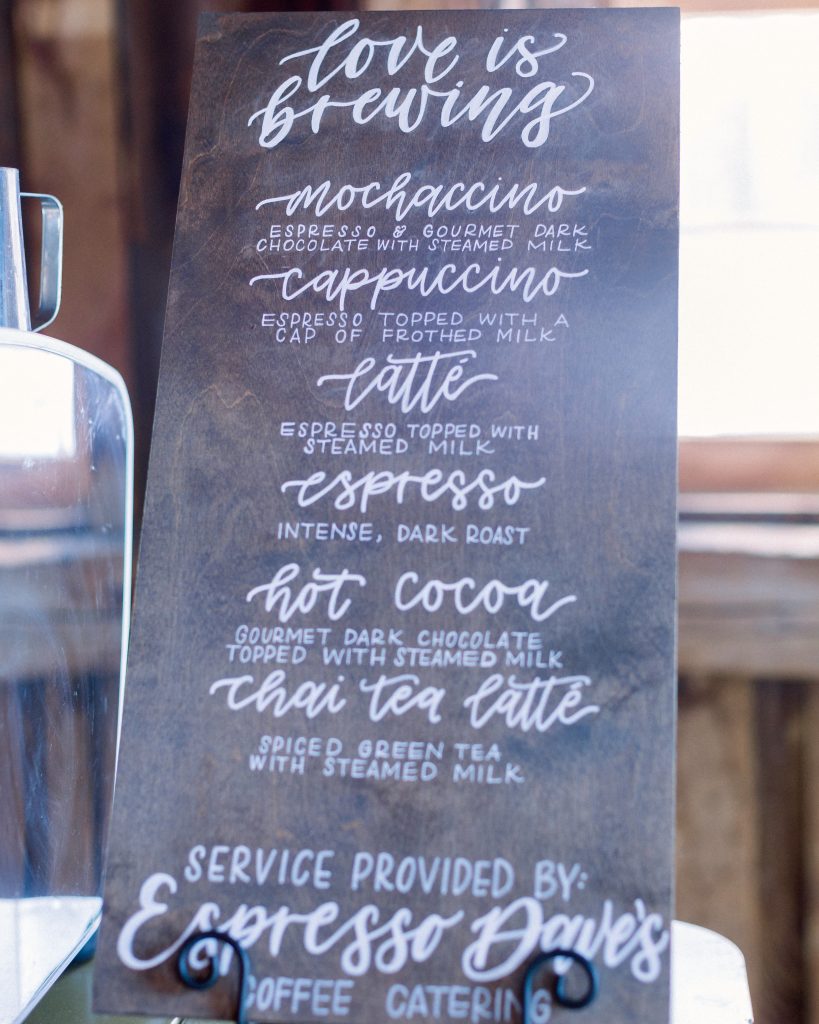 love is
brewing
mochaccino
ESPRESSO & GOURMET DARK
CHOCOLATE WITH STEAMED MILK
cappuccino
ESPRESSO TOPPED WITH A
CAP OF FROTHED MILK
latté
ESPRESSO TOPPED WITH
STEAMED MILK
espresso
INTENSE, DARK ROAST
hot cocoa
GOURMET DARK CHOCOLATE
TOPPED WITH STEAMED MILK
chai tea latté
SPICED GREEN TEA
WITH STEAMED MILK
SERVICE PROVIDED BY:
Espresso Dave's
COFFEE CATERING